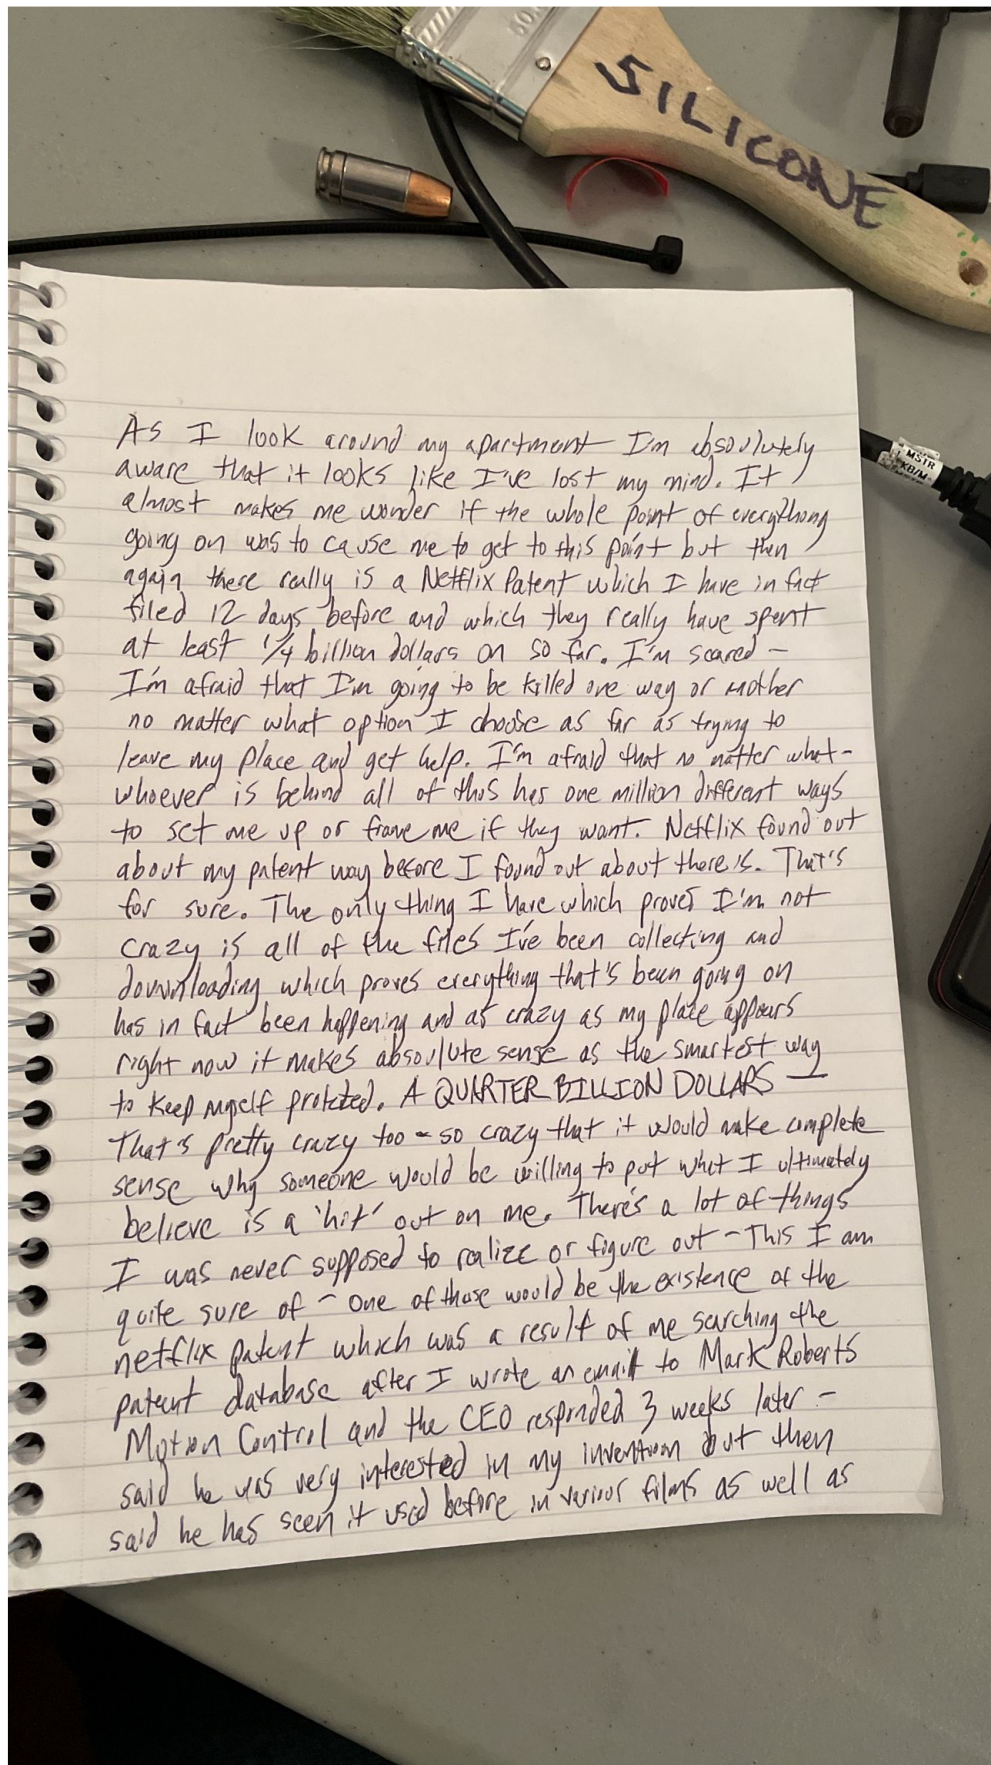 SILICONE
MSTR
KB/M
As I look around my apartment I'm absoulutely
aware that it looks like I've lost my mind. It
almost makes me wonder if the whole point of everything
going on was to cause me to get to this point but then
again there really is a Netflix Patent which I have in fact
filed 12 days before and which they really have spent
at least 1/4 billion dollars on so far. I'm scared -
I'm afraid that I'm going to be killed one way or another
no matter what option I choose as far as trying to
leave my place and get help. I'm afraid that no matter what -
whoever is behind all of this has one million different ways
to set me up or frame me if they want. Netflix found out
about my patent way before I found out about there is. That's
for sure. The only thing I have which proves I'm not
crazy is all of the files I've been collecting and
downloading which proves everything that's been going on
has in fact been happening and as crazy as my place appears
right now it makes absoulute sense as the smartest way
to keep myself protected. A QUARTER BILLION DOLLARS —
That's pretty crazy too - so crazy that it would make complete
sense why someone would be willing to put what I ultimately
believe is a 'hit' out on me. There's a lot of things
I was never supposed to realize or figure out - This I am
quite sure of - one of those would be the existence of the
netflix patent which was a result of me searching the
patent database after I wrote an email to Mark Roberts
Motion Control and the CEO responded 3 weeks later -
said he was very interested in my invention but then
said he has seen it used before in various films as well as